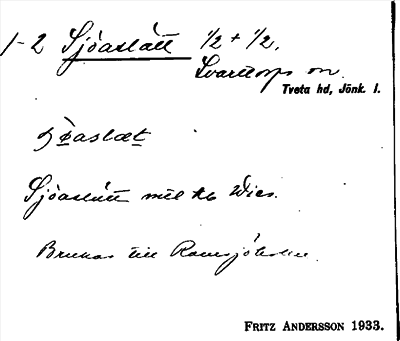 1-2 Sjöaslätt 1/2 + 1/2.
Svarttorps sn.
Tveta hd, Jönk. l.
Sjöaslätt
Brukas till Ramsjöholm.
FRITZ ANDERSSON 1933.